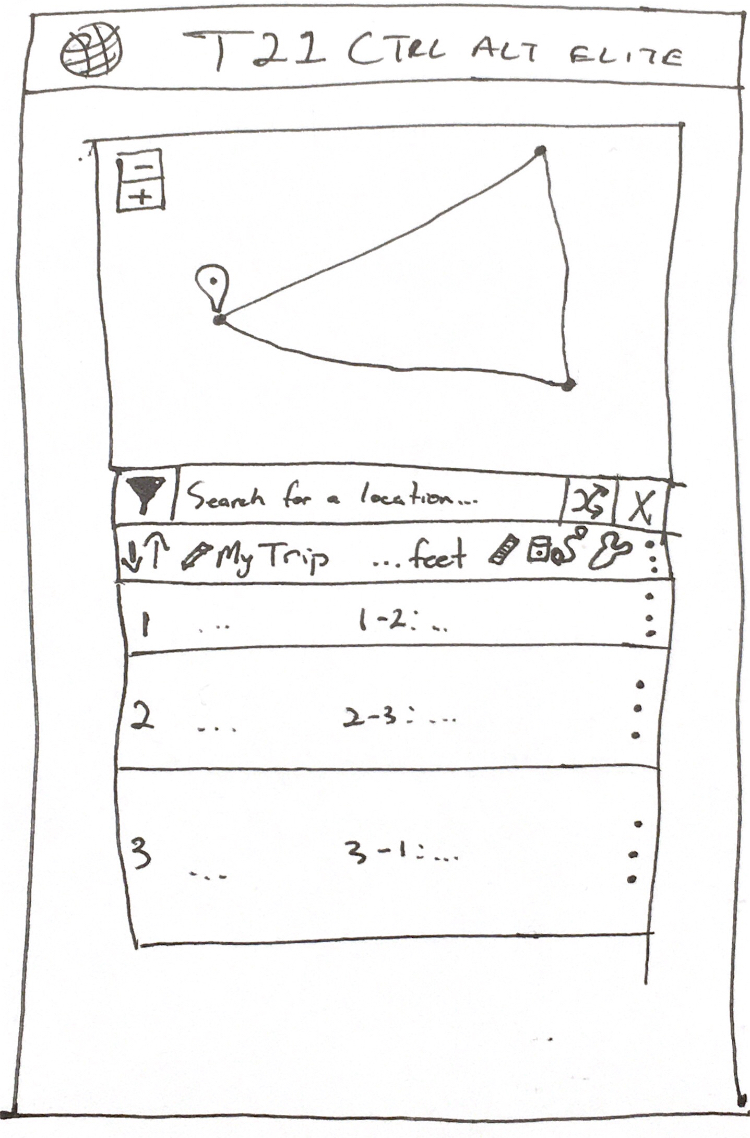 T21 CTRL ALT ELITE
-
+
Search for a location... X
My Trip ...feet
1 ... 1-2:...
2 ... 2-3:...
3 ... 3-1:...